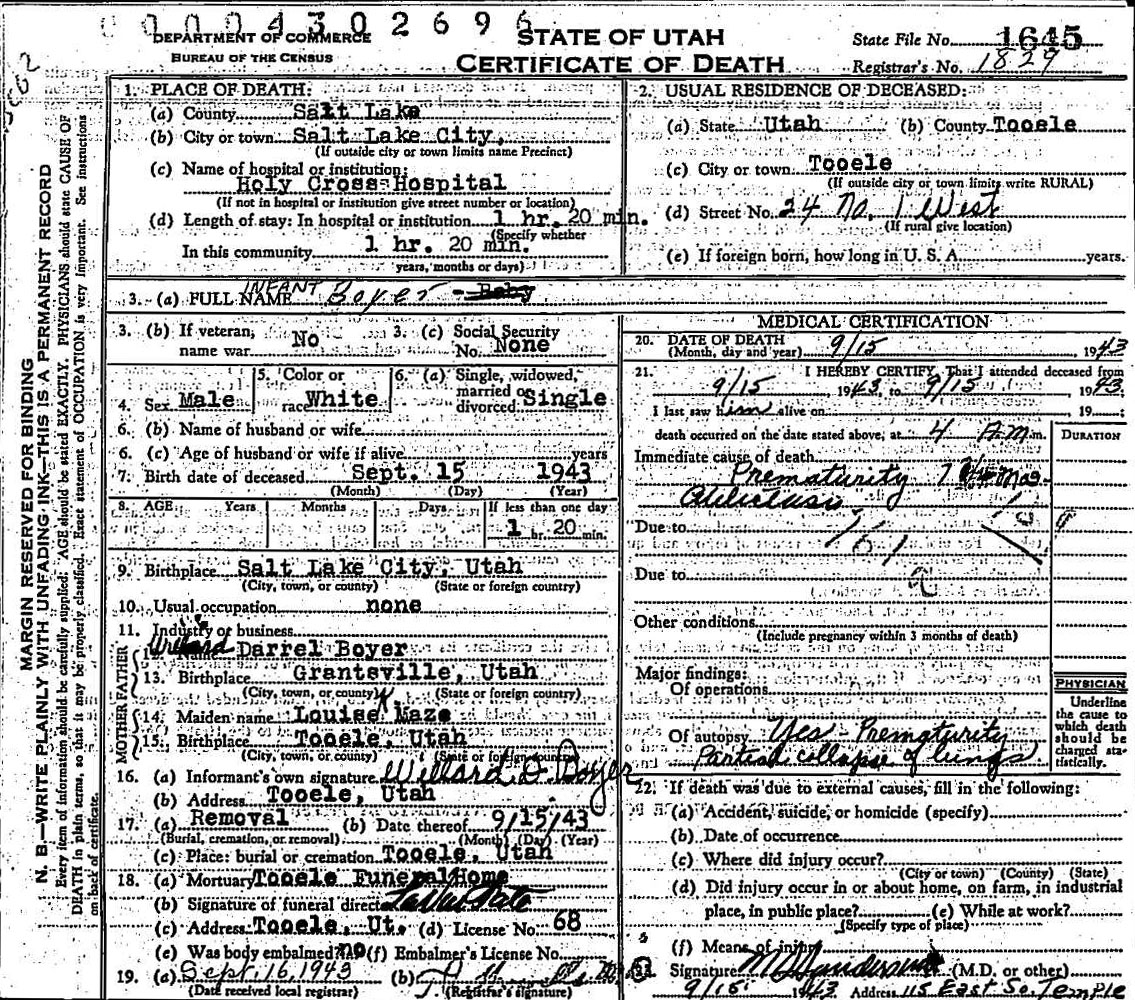 0 0 0 4 3 0 2 6 9 6
DEPARTMENT OF COMMERCE
BUREAU OF THE CENSUS
STATE OF UTAH
CERTIFICATE OF DEATH
State File No. 1645
Registrar's No. 1829
MARGIN RESERVED FOR BINDING
N. B.—WRITE PLAINLY WITH UNFADING INK—THIS IS A PERMANENT RECORD
Every item of information should be carefully supplied. AGE should be stated EXACTLY. PHYSICIANS should state CAUSE OF
DEATH in plain terms, so that it may be properly classified. Exact statement of OCCUPATION is very important. See instructions
on back of certificate.
1. PLACE OF DEATH:
(a) County Salt Lake
(b) City or town Salt Lake City,
(If outside city or town limits name Precinct)
(c) Name of hospital or institution:
Holy Cross Hospital
(If not in hospital or institution give street number or location)
(d) Length of stay: In hospital or institution 1 hr. 20 min.
(Specify whether
In this community 1 hr. 20 min.
years, months or days)
2. USUAL RESIDENCE OF DECEASED:
(a) State Utah (b) County Tooele
(c) City or town Tooele
(If outside city or town limits write RURAL)
(d) Street No. 24 No. 1 West
(If rural give location)
(e) If foreign born, how long in U. S. A. years.
3. (a) FULL NAME INFANT Boyer - Baby
3. (b) If veteran, name war No
3. (c) Social Security No. None
4. Sex Male
5. Color or race White
6. (a) Single, widowed, married or divorced Single
6. (b) Name of husband or wife
6. (c) Age of husband or wife if alive years
7. Birth date of deceased Sept. 15 1943
(Month) (Day) (Year)
8. AGE Years Months Days If less than one day
1 hr. 20 min.
9. Birthplace Salt Lake City, Utah
(City, town, or county) (State or foreign country)
10. Usual occupation none
11. Industry or business
FATHER
Willard Darrel Boyer
13. Birthplace Grantsville, Utah
(City, town, or county) (State or foreign country)
MOTHER
14. Maiden name Louise K Maze
15. Birthplace Tooele, Utah
(City, town, or county) (State or foreign country)
16. (a) Informant's own signature Willard D. Boyer
(b) Address Tooele, Utah
17. (a) Removal (b) Date thereof 9/15/43
(Burial, cremation, or removal) (Month) (Day) (Year)
(c) Place: burial or cremation Tooele, Utah
18. (a) Mortuary Tooele Funeral Home
(b) Signature of funeral director
(c) Address Tooele, Ut. (d) License No. 68
(e) Was body embalmed? no (f) Embalmer's License No.
19. (a) Sept. 16, 1943 (b)
(Date received local registrar) (Registrar's signature)
MEDICAL CERTIFICATION
20. DATE OF DEATH
(Month, day and year) 9/15, 1943
21. I HEREBY CERTIFY, That I attended deceased from
9/15 1943, to 9/15 1943.
I last saw him alive on , 19 ;
death occurred on the date stated above, at 4 A.m. m.
DURATION
Immediate cause of death
Prematurity 7 mos.
Atelectasis
Due to
161
Due to
Other conditions
(Include pregnancy within 3 months of death)
Major findings:
Of operations
Of autopsy Yes - Prematurity
Partial collapse of lungs
PHYSICIAN
Underline
the cause to
which death
should be
charged sta-
tistically.
22. If death was due to external causes, fill in the following:
(a) Accident, suicide, or homicide (specify)
(b) Date of occurrence
(c) Where did injury occur?
(City or town) (County) (State)
(d) Did injury occur in or about home, on farm, in industrial
place, in public place? (e) While at work?
(Specify type of place)
(f) Means of injury
Signature (M.D. or other)
9/15 1943 Address 115 East So. Temple